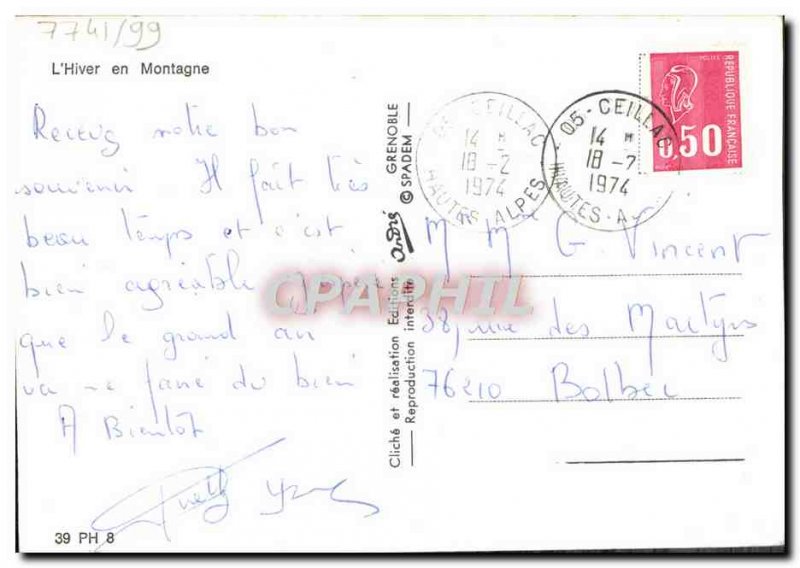 7741/99
L'Hiver en Montagne
Recevez notre bon
souvenir Il fait très
beau temps et c'est
bien agréable
que le grand air
va me faire du bien
A Bientôt
39 PH 8
Cliché et réalisation Editions André GRENOBLE
Reproduction interdite © SPADEM
05-CEILLAC
14 H
18-2
1974
HAUTES-ALPES
05-CEILLAC
14 H
18-2
1974
HAUTES-A
POSTES
REPUBLIQUE FRANÇAISE
0,50
M Mme G. Vincent
38, rue des Martyrs
76210 Bolbec
CPAPHIL